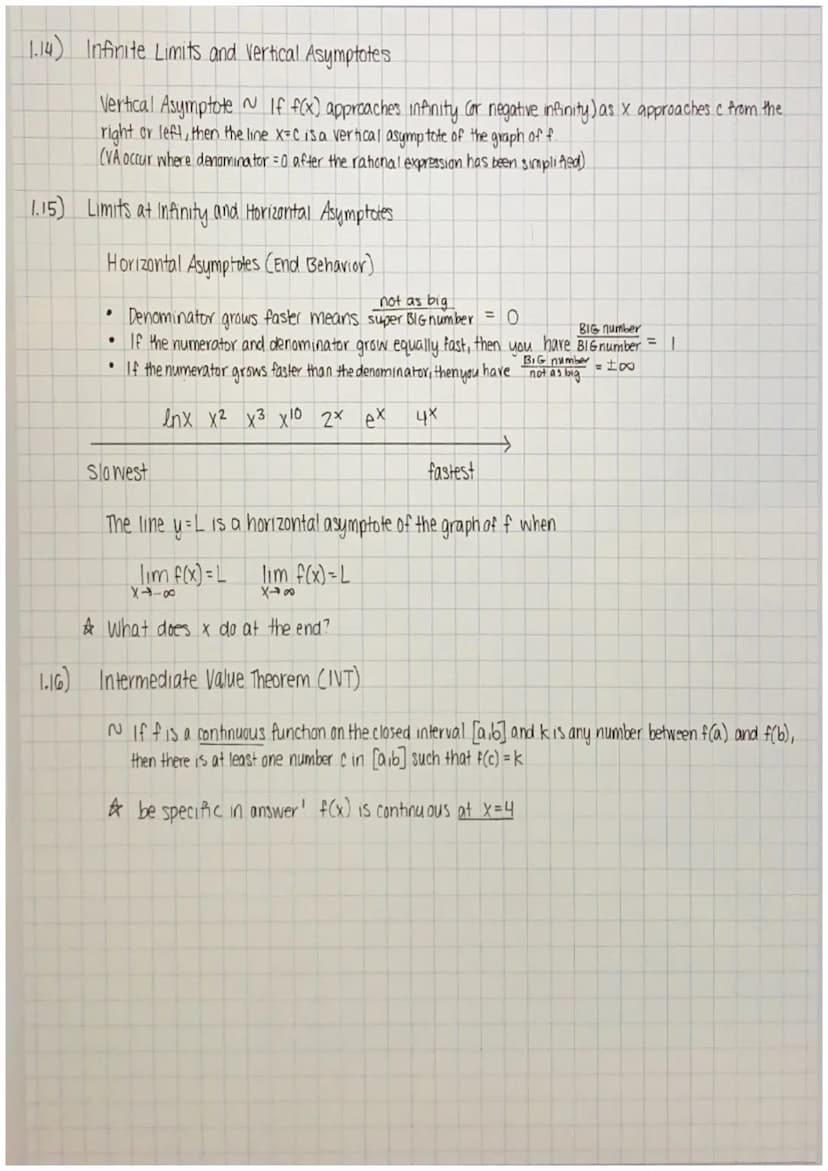 1.14) Infinite Limits and Vertical Asymptotes
Vertical Asymptote ~ If f(x) approaches infinity (or negative infinity) as x approaches c from the
right or left, then the line x=c is a vertical asymptote of the graph of f.
(VA occur where denominator = 0 after the rational expression has been simplified)
1.15) Limits at Infinity and Horizontal Asymptotes
Horizontal Asymptotes (End Behavior)
• Denominator grows faster means not as big / super BIG number = 0
• If the numerator and denominator grow equally fast, then you have BIG number / BIG number = 1
• If the numerator grows faster than the denominator, then you have BIG number / not as big = ±∞
lnx x² x³ x¹⁰ 2ˣ eˣ 4ˣ
Slowest fastest
The line y=L is a horizontal asymptote of the graph of f when
lim f(x)=L lim f(x)=L
x→-∞ x→∞
☆ What does x do at the end?
1.16) Intermediate Value Theorem (IVT)
~ If f is a continuous function on the closed interval [a,b] and k is any number between f(a) and f(b),
then there is at least one number c in [a,b] such that f(c)=k
☆ be specific in answer! f(x) is continuous at x=4